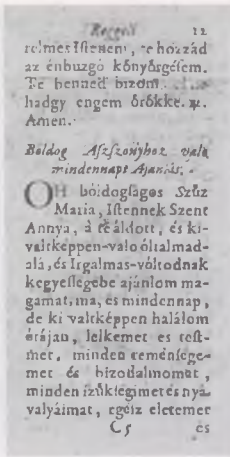 Reggeli 12
relmes Iſtenem, te hozzád
az énbuzgó kőnyőrgéſem.
Te benned bizom,
hadgy engem őrőkke.
Amen.
Boldog Aſzſzonyhoz való
mindennapi Ajánlás.
OH bóldogſagos Szűz
Maria, Iſtennek Szent
Annya, à te áldott, és ki-
valtképpen-való óltalmad-
alá, és Irgalmas-vóltodnak
kegyeſſegébe ajánlom ma-
gamat, ma, és mindennap,
de ki valtképpen halálom
óráján, lelkemet es teſt-
met, minden reménſege-
met és bizodalmomat,
minden ſzűkſégimet és nyá-
valyáimat, egéſz eletemet
C5 és